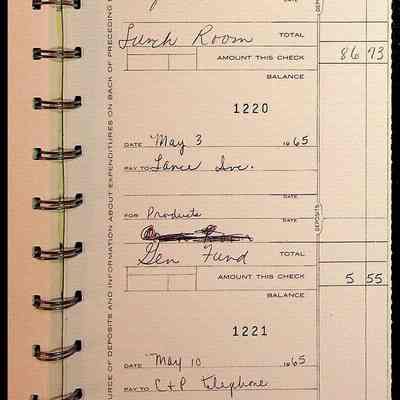 DEPOSITS
Lunch Room TOTAL
AMOUNT THIS CHECK 86 73
BALANCE
1220
DATE May 3 1965
PAY TO Lance Inc.
DATE
FOR Products DATE
DEPOSITS
Gen Fund TOTAL
AMOUNT THIS CHECK 5 55
BALANCE
1221
DATE May 10 1965
PAY TO C+P telephone
URCE OF DEPOSITS AND INFORMATION ABOUT EXPENDITURES ON BACK OF PRECEDING